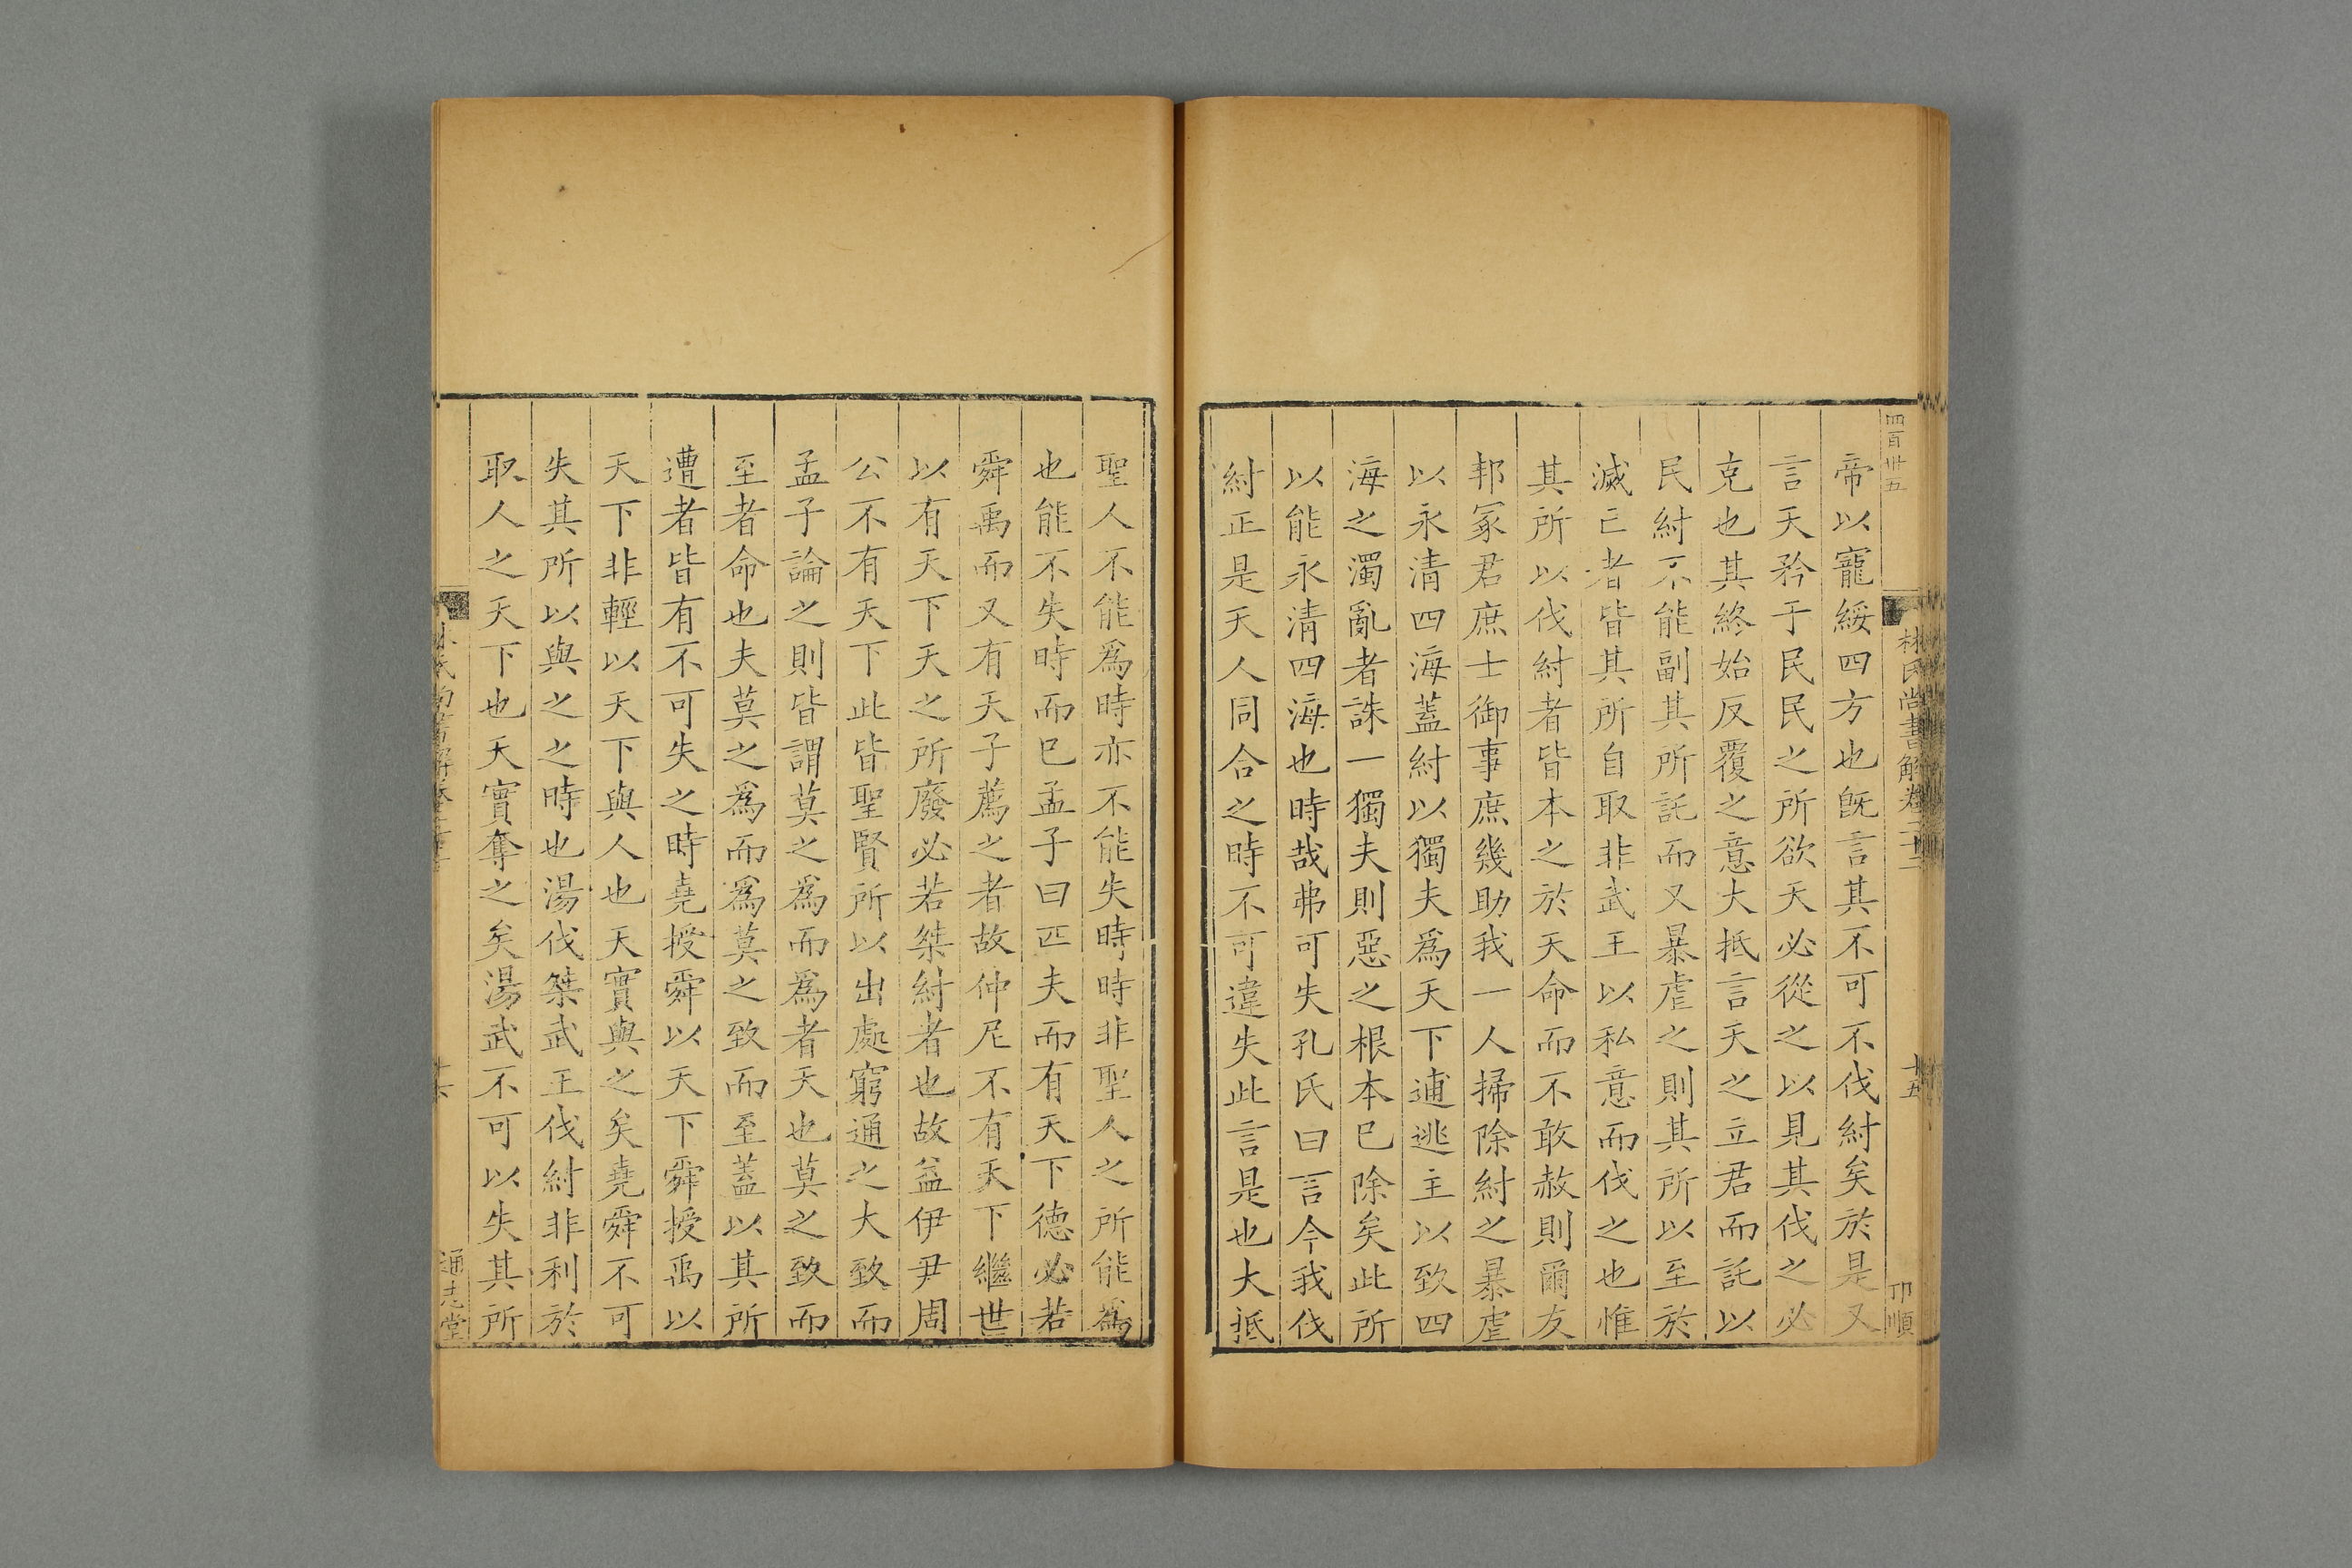 四百卅五
林氏尚書解卷二十二
十五
卭順
帝以寵綏四方也旣言其不可不伐紂矣於是又
言天矜于民民之所欲天必從之以見其伐之必
克也其終始反覆之意大抵言天之立君而託以
民紂不能副其所託而又暴虐之則其所以至於
滅亡者皆其所自取非武王以私意而伐之也惟
其所以伐紂者皆本之於天命而不敢赦則爾友
邦冢君庶士御事庶幾助我一人掃除紂之暴虐
以永清四海蓋紂以獨夫爲天下逋逃主以致四
海之濁亂者誅一獨夫則惡之根本已除矣此所
以能永清四海也時哉弗可失孔氏曰言今我伐
紂正是天人同合之時不可違失此言是也大抵
聖人不能爲時亦不能失時時非聖人之所能爲
也能不失時而已孟子曰匹夫而有天下德必若
舜禹而又有天子薦之者故仲尼不有天下繼世
以有天下天之所廢必若桀紂者也故益伊尹周
公不有天下此皆聖賢所以出處窮通之大致而
孟子論之則皆謂莫之爲而爲者天也莫之致而
至者命也夫莫之爲而爲莫之致而至蓋以其所
遭者皆有不可失之時堯授舜以天下舜授禹以
天下非輕以天下與人也天實與之矣堯舜不可
失其所以與之之時也湯伐桀武王伐紂非利於
取人之天下也天實奪之矣湯武不可以失其所
通志堂